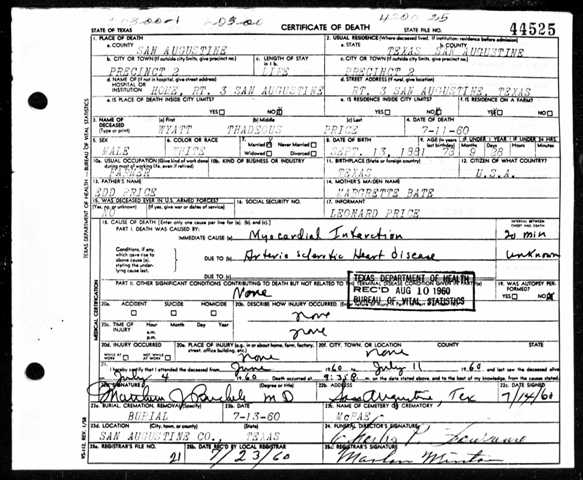 4500 25
STATE OF TEXAS CERTIFICATE OF DEATH STATE FILE NO. 44525
1. PLACE OF DEATH 2. USUAL RESIDENCE (Where deceased lived. If institution: residence before admission)
a. COUNTY SAN AUGUSTINE a. STATE TEXAS b. COUNTY SAN AUGUSTINE
b. CITY OR TOWN (If outside city limits, give precinct no.) c. LENGTH OF STAY c. CITY OR TOWN (If outside city limits, give precinct no.)
PRECINCT 2 LIFE PRECINCT 2
d. NAME OF (If not in hospital, give street address) HOSPITAL OR INSTITUTION d. STREET ADDRESS (If rural, give location)
HOME, RT. 3 SAN AUGUSTINE RT. 3 SAN AUGUSTINE, TEXAS
e. IS PLACE OF DEATH INSIDE CITY LIMITS? e. IS RESIDENCE INSIDE CITY LIMITS? f. IS RESIDENCE ON A FARM?
YES NO YES NO YES NO
3. NAME OF DECEASED (Type or print) (a) First (b) Middle (c) Last 4. DATE OF DEATH
WYATT THADEOUS PRICE 7-11-60
5. SEX 6. COLOR OR RACE 7. Married Never Married 8. DATE OF BIRTH 9. AGE IF UNDER 1 YEAR IF UNDER 24 HRS.
MALE WHITE Widowed Divorced SEPT. 13, 1881 78 9 28
10a. USUAL OCCUPATION (Give kind of work done during most of working life, even if retired) 10b. KIND OF BUSINESS OR INDUSTRY 11. BIRTHPLACE (State or foreign country) 12. CITIZEN OF WHAT COUNTRY?
FARMER TEXAS U.S.A.
13. FATHER'S NAME 14. MOTHER'S MAIDEN NAME
EDD PRICE MARGRETTE BATE
15. WAS DECEASED EVER IN U.S. ARMED FORCES? 16. SOCIAL SECURITY NO. 17. INFORMANT
(Yes, no, or unknown) (If yes, give war or dates of service)
NO LEONARD PRICE
18. CAUSE OF DEATH (Enter only one cause per line for (a), (b), and (c).) INTERVAL BETWEEN ONSET AND DEATH
PART I. DEATH WAS CAUSED BY:
IMMEDIATE CAUSE (a) Myocardial Infarction 20 min
Conditions, if any, which gave rise to above cause (a), stating the underlying cause last.
DUE TO (b) Arterio sclerotic Heart disease unknown
DUE TO (c)
PART II. OTHER SIGNIFICANT CONDITIONS CONTRIBUTING TO DEATH BUT NOT RELATED TO THE TERMINAL DISEASE CONDITION GIVEN IN PART I(a) 19. WAS AUTOPSY PERFORMED?
None YES NO
TEXAS DEPARTMENT OF HEALTH
REC'D AUG 10 1960
BUREAU OF VITAL STATISTICS
20a. ACCIDENT SUICIDE HOMICIDE 20b. DESCRIBE HOW INJURY OCCURRED.
none
20c. TIME OF INJURY Hour Month Day Year
a.m.
p.m.
none
20d. INJURY OCCURRED 20e. PLACE OF INJURY (e.g., in or about home, farm, factory, street, office building, etc.) 20f. CITY, TOWN, OR LOCATION COUNTY STATE
WHILE AT WORK NOT WHILE AT WORK None none
21. I hereby certify that I attended the deceased from June 1960 to July 11 1960 and last saw the deceased alive
July 4 1960. Death occurred at on the date stated above, and to the best of my knowledge, from the causes stated.
22a. SIGNATURE (Degree or title) 22b. ADDRESS 22c. DATE SIGNED
M D San Augustine, Tex 7/14/60
23a. BURIAL, CREMATION, REMOVAL (Specify) 23b. DATE 23c. NAME OF CEMETERY OR CREMATORY
BURIAL 7-13-60 McRAE
23d. LOCATION (City, town, or county) (State) 24. FUNERAL DIRECTOR'S SIGNATURE
SAN AUGUSTINE CO., TEXAS
25a. REGISTRAR'S FILE NO. 25b. DATE REC'D BY LOCAL REGISTRAR 25c. REGISTRAR'S SIGNATURE
21 7/23/60 Marlon Minton
TEXAS DEPARTMENT OF HEALTH — BUREAU OF VITAL STATISTICS
MEDICAL CERTIFICATION